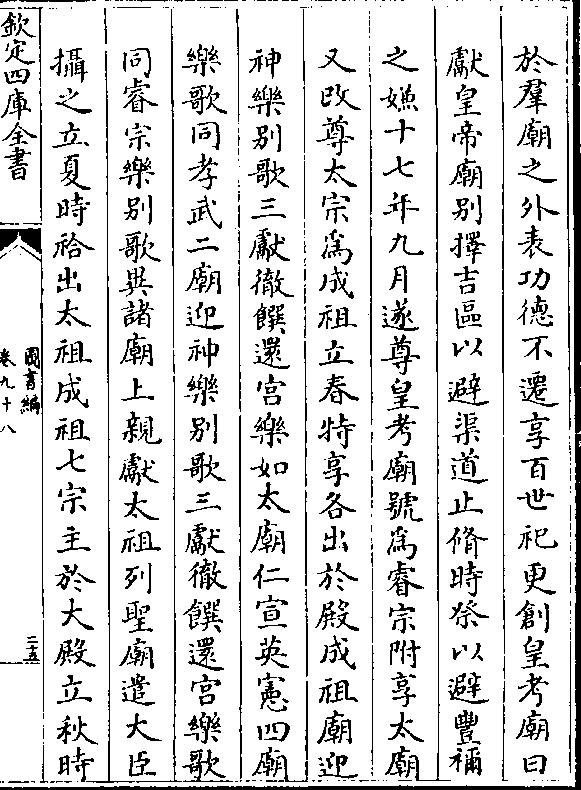 於羣廟之外表功德不遷享百世祀更創皇考廟曰
獻皇帝廟别擇吉區以避渠道止脩時祭以避豐禰
之嫌十七年九月遂尊皇考廟號為睿宗附享太廟
又改尊太宗為成祖立春特享各出於殿成祖廟迎
神樂别歌三獻徹饌還宫樂如太廟仁宣英憲四廟
樂歌同孝武二廟迎神樂别歌三獻徹饌還宫樂歌
同睿宗樂别歌異諸廟上親獻太祖列聖廟遣大臣
攝之立夏時祫出太祖成祖七宗主於大殿立秋時
欽定四庫全書
圖書編
卷九十八
二十五